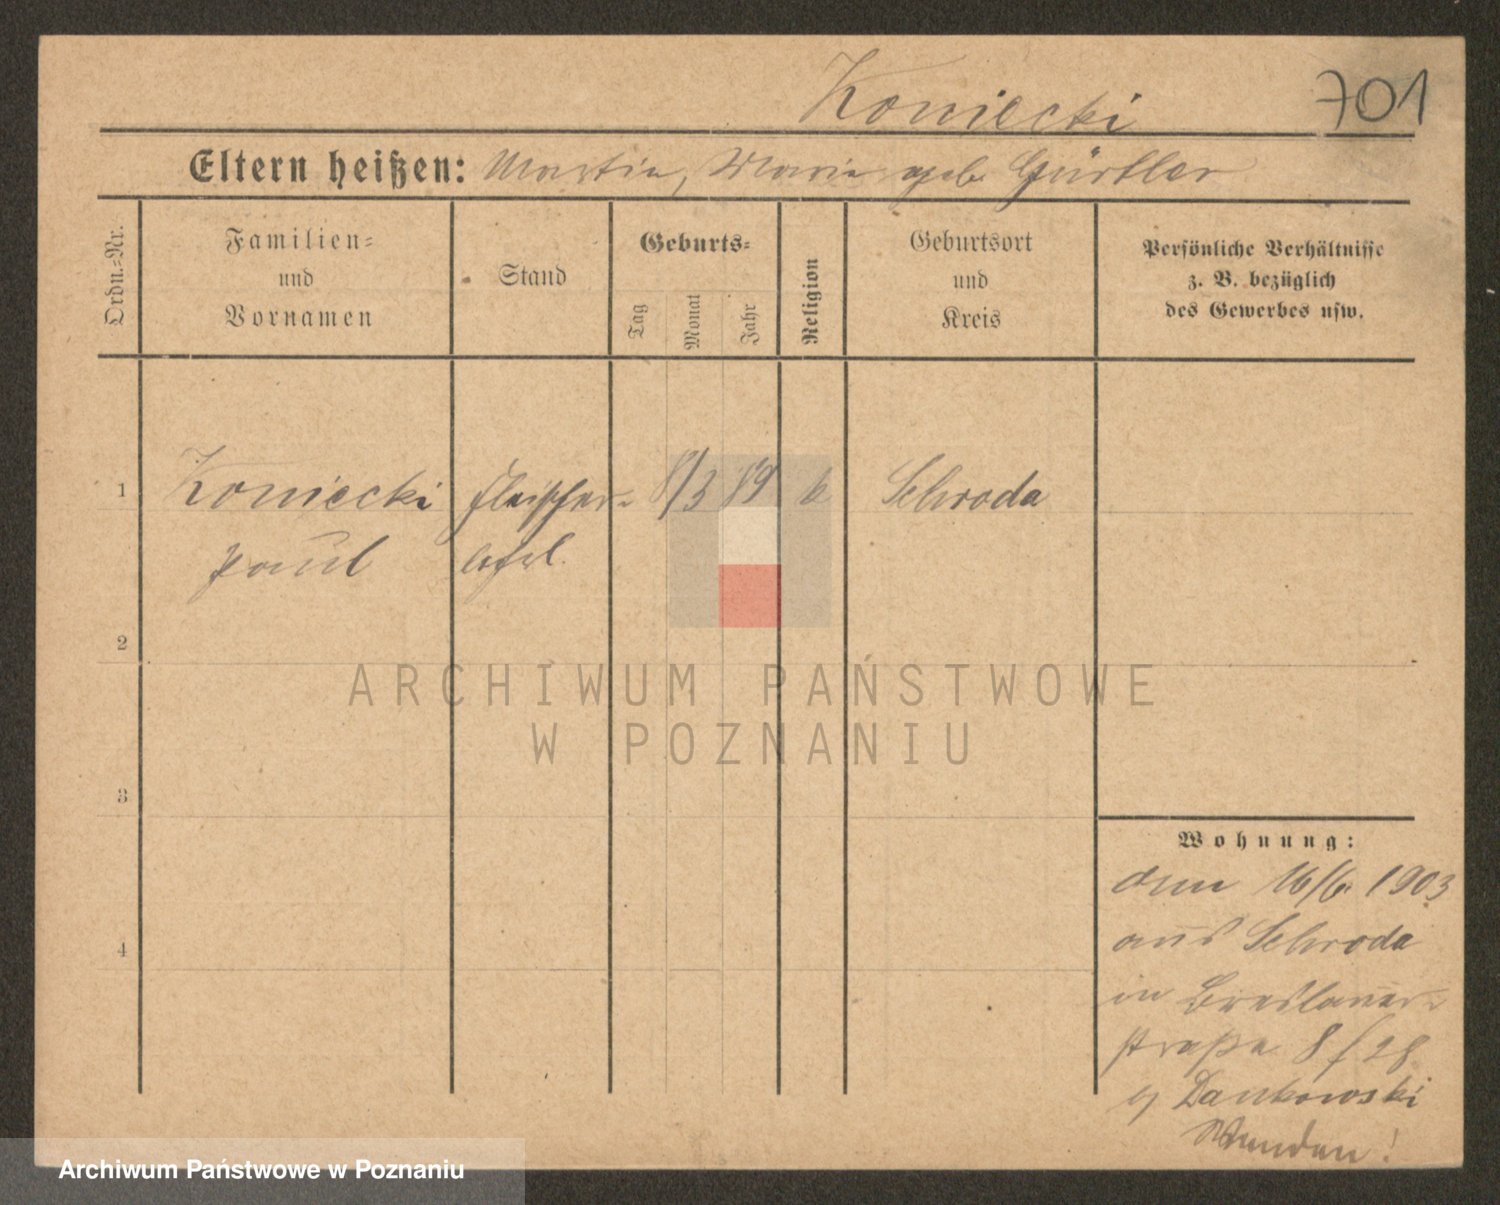 Koniecki 701
Eltern heißen: Martin, Marie geb Gürtler
Ordn.-Nr.
Familien-
und
Vornamen
Stand
Geburts-
Tag
Monat
Jahr
Religion
Geburtsort
und
Kreis
Persönliche Verhältnisse
z. B. bezüglich
des Gewerbes usw.
1 Koniecki Fleischer- 8/3 89 k Schroda
Paul
2
ARCHIWUM PAŃSTWOWE
W POZNANIU
3
Wohnung:
16/6. 1903
aus Schroda
4
in Breslauer-
straße 8
Dankowski
Archiwum Państwowe w Poznaniu